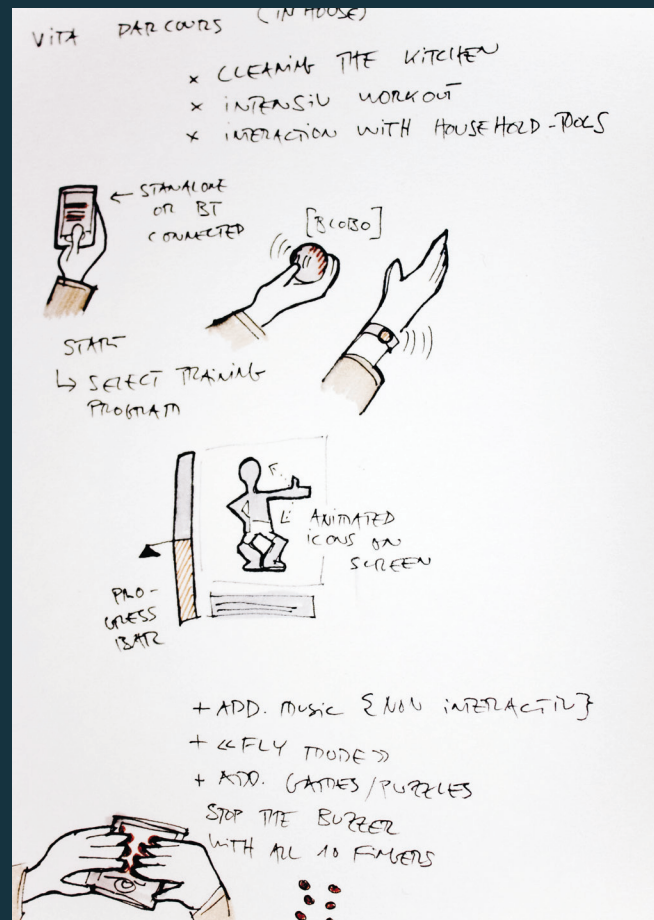 VITA PARCOURS (IN HOUSE)
x CLEANING THE KITCHEN
x INTENSIV WORKOUT
x INTERACTION WITH HOUSEHOLD-TOOLS
← STANALONE
OR BT
CONNECTED
[BLOBO]
START
↳ SELECT TRAINING
PROGRAM
ANIMATED
ICONS ON
SCREEN
PRO-
GRESS
BAR
+ ADD. MUSIC {NON INTERACTIV}
+ «FLY MODE»
+ ADD. GAMES/PUZZLES
STOP THE BUZZER
WITH ALL 10 FINGERS